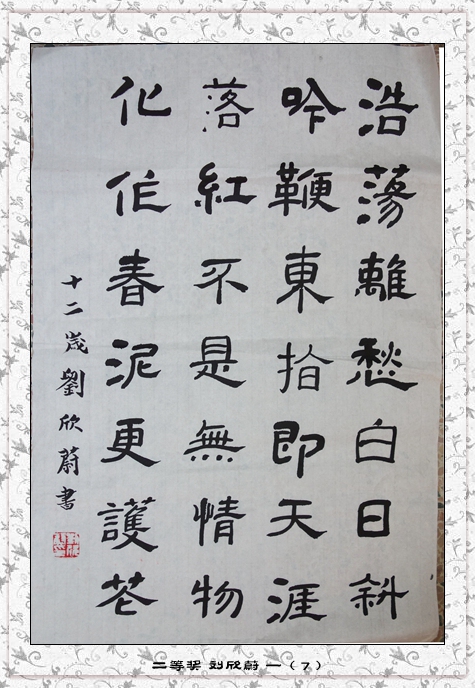 浩蕩離愁白日斜
吟鞭東指即天涯
落紅不是無情物
化作春泥更護花
十二歲劉欣蔚書
二等奖 刘欣蔚 一（7）